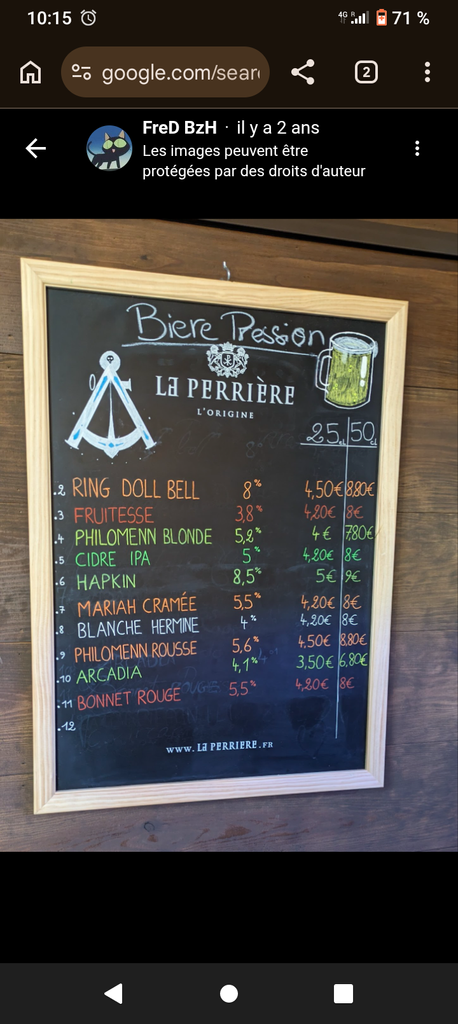 10:15 4G 71 %
google.com/sear 2
FreD BzH · il y a 2 ans
Les images peuvent être
protégées par des droits d'auteur
Biere Pression
La PERRIÈRE
L'ORIGINE
25cl 50cl
.2 RING DOLL BELL 8% 4,50€ 8,80€
.3 FRUITESSE 3,8% 4,20€ 8€
.4 PHILOMENN BLONDE 5,2% 4€ 7,80€
.5 CIDRE IPA 5% 4,20€ 8€
.6 HAPKIN 8,5% 5€ 9€
.7 MARIAH CRAMÉE 5,5% 4,20€ 8€
.8 BLANCHE HERMINE 4% 4,20€ 8€
.9 PHILOMENN ROUSSE 5,6% 4,50€ 8,80€
.10 ARCADIA 4,1% 3,50€ 6,80€
.11 BONNET ROUGE 5,5% 4,20€ 8€
.12
WWW. La PERRIERE .FR